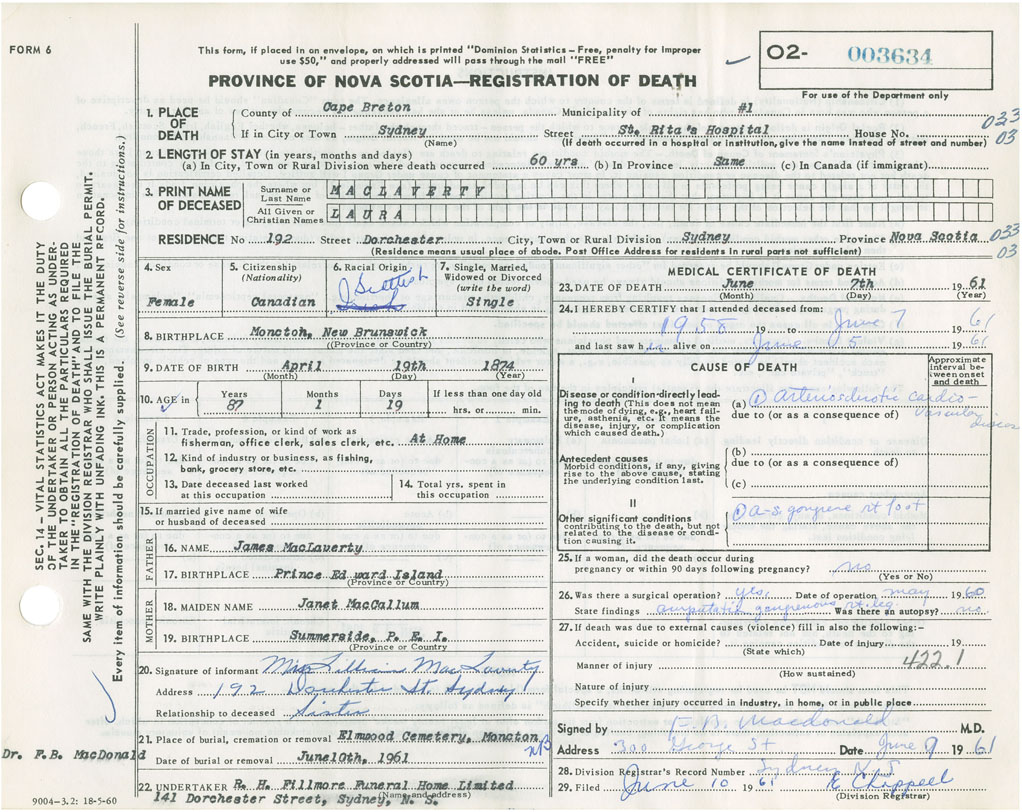 FORM 6
This form, if placed in an envelope, on which is printed "Dominion Statistics – Free, penalty for improper
use $50," and properly addressed will pass through the mail "FREE"
02- 003634
PROVINCE OF NOVA SCOTIA—REGISTRATION OF DEATH
For use of the Department only
1. PLACE OF DEATH
County of Cape Breton Municipality of #1
If in City or Town Sydney Street St. Rita's Hospital House No.
(Name) (If death occurred in a hospital or institution, give the name instead of street and number)
033
03
2. LENGTH OF STAY (in years, months and days)
(a) In City, Town or Rural Division where death occurred 60 yrs (b) In Province Same (c) In Canada (if immigrant)
3. PRINT NAME OF DECEASED
Surname or Last Name MACLAVERTY
All Given or Christian Names LAURA
RESIDENCE No 192 Street Dorchester City, Town or Rural Division Sydney Province Nova Scotia
(Residence means usual place of abode. Post Office Address for residents in rural parts not sufficient)
033
03
4. Sex
Female
5. Citizenship
(Nationality)
Canadian
6. Racial Origin
Scottish
7. Single, Married, Widowed or Divorced
(write the word)
Single
8. BIRTHPLACE Moncton, New Brunswick
(Province or Country)
9. DATE OF BIRTH April 19th 1874
(Month) (Day) (Year)
10. AGE in Years Months Days If less than one day old
87 1 19 hrs. or min.
OCCUPATION
11. Trade, profession, or kind of work as
fisherman, office clerk, sales clerk, etc. At Home
12. Kind of industry or business, as fishing,
bank, grocery store, etc.
13. Date deceased last worked
at this occupation
14. Total yrs. spent in
this occupation
15. If married give name of wife
or husband of deceased
FATHER
16. NAME James MacLaverty
17. BIRTHPLACE Prince Edward Island
(Province or Country)
MOTHER
18. MAIDEN NAME Janet MacCallum
19. BIRTHPLACE Summerside, P. E. I.
(Province or Country
20. Signature of informant Miss Lillian MacLaverty
Address 192 Dorchester St. Sydney
Relationship to deceased Sister
21. Place of burial, cremation or removal Elmwood Cemetery, Moncton NB
Date of burial or removal June 10th, 1961
22. UNDERTAKER R. H. Fillmore Funeral Home Limited
(Name and address)
141 Dorchester Street, Sydney, N. S.
MEDICAL CERTIFICATE OF DEATH
23. DATE OF DEATH June 7th 1961
(Month) (Day) (Year)
24. I HEREBY CERTIFY that I attended deceased from:
1958 19 to June 7 1961
and last saw her alive on June 5 1961
CAUSE OF DEATH
Approximate interval between onset and death
I
Disease or condition directly leading
to death (This does not mean
the mode of dying, e.g., heart failure,
asthenia, etc. It means the
disease, injury, or complication
which caused death.)
(a) arteriosclerotic cardio-vascular disease
due to (or as a consequence of)
Antecedent causes
Morbid conditions, if any, giving
rise to the above cause, stating
the underlying condition last.
(b)
due to (or as a consequence of)
(c)
II
Other significant conditions
contributing to the death, but not
related to the disease or condition
causing it.
a-s gangrene rt foot
25. If a woman, did the death occur during
pregnancy or within 90 days following pregnancy? no
(Yes or No)
26. Was there a surgical operation? yes, Date of operation may 1960
State findings amputation gangrenous rt. leg. Was there an autopsy? no
27. If death was due to external causes (violence) fill in also the following:–
Accident, suicide or homicide? Date of injury 19
(State which)
422.1
Manner of injury
(How sustained)
Nature of injury
Specify whether injury occurred in industry, in home, or in public place
Signed by F. B. Macdonald M.D.
Address 300 George St Date June 9 1961
Sydney N.S.
28. Division Registrar's Record Number
29. Filed June 10 1961 Chappell
(Division Registrar)
SEC. 14 – VITAL STATISTICS ACT MAKES IT THE DUTY
OF THE UNDERTAKER OR PERSON ACTING AS UNDER-
TAKER TO OBTAIN ALL THE PARTICULARS REQUIRED
IN THE "REGISTRATION OF DEATH" AND TO FILE THE
SAME WITH THE DIVISION REGISTRAR WHO SHALL ISSUE THE BURIAL PERMIT.
WRITE PLAINLY WITH UNFADING INK. THIS IS A PERMANENT RECORD.
Every item of information should be carefully supplied. (See reverse side for instructions.)
Dr. F.B. MacDonald
9004-3.2: 18-5-60